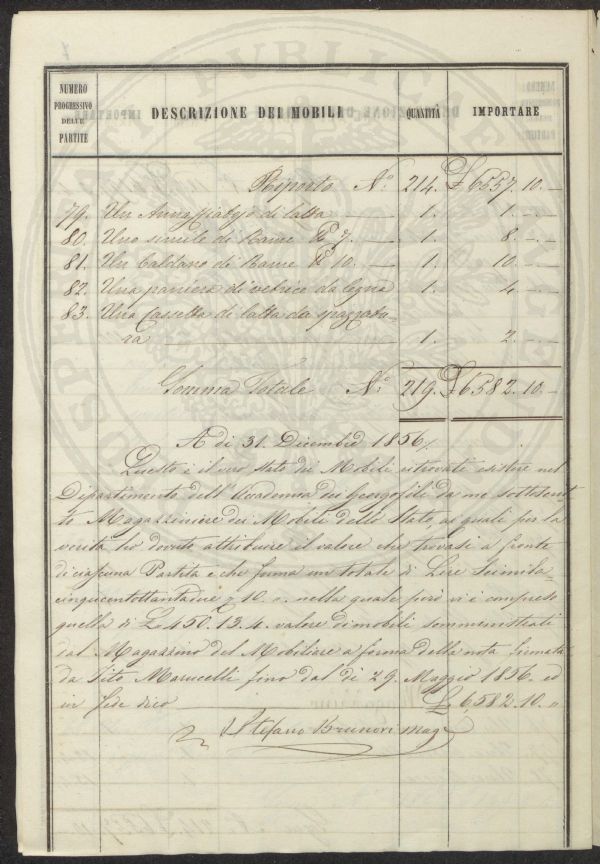 NUMERO PROGRESSIVO DELLE PARTITE DESCRIZIONE DEI MOBILI QUANTITÀ IMPORTARE
Riporto N.° 214. £ 6557. 10. —
79. Un Annaffiatojo di latta 1. 1. — . —
80. Uno simile di Rame 7. — 1. 8. — . —
81. Un Caldano di Rame 10. — 1. 10. — . —
82. Una paniera di vetrice da legna 1. 4. — . —
83. Una Cassetta di latta da spazzatu-
ra 1. 2. — . —
Somma Totale N.° 219. £ 6582. 10. —
A di 31. Dicembre 1856
Questo è il vero stato dei Mobili ritrovati esistere nel
Dipartimento dell' Accademia dei Georgofili da me sottoscrit-
to Magazziniere dei Mobili dello Stato, ai quali per la
verità ho dovuto attribuire il valore che trovasi a fronte
di ciascuna Partita e che forma un totale di Lire Seimila-
cinquecentottantadue 10. nella quale però vi è compreso
quella di £ 450. 13. 4. valore di mobili somministrati
dal Magazzino del Mobiliare a forma della nota firmata
da Tito Marucelli fino dal di 29. Maggio 1856. ed
in fede dico £ 6,582. 10. "
Stefano Brunori